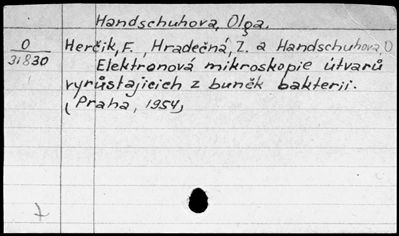 Handschuhova, Olga.
O
31830
Herčik, F., Hradečná, Z. a Handschuhova, O
Elektronová mikroskopie útvarů
vyrůstajicich z buněk bakterii.
(Praha, 1954)